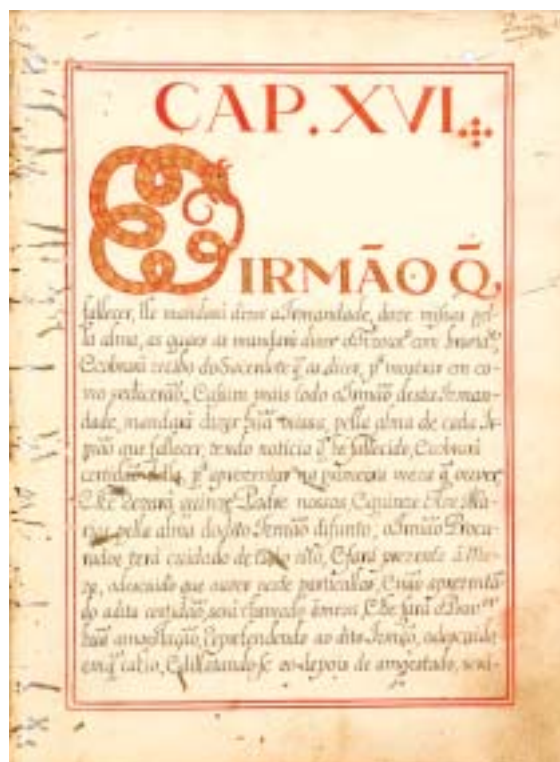 CAP. XVI.
O IRMÃO Q̃,
fallecer, lhe mandará dizer a Irmandade, doze missas pel-
la alma, as quaes as mandará dizer o Thezour.º com brevid.e,
E cobrará recibo do Sacerdote q̃ as dicer, p.ª mostrar em co-
mo se dicerão, E assim mais todo o Irmão desta Irman-
dade, mandará dizer huã missa, pella alma de cada Ir-
mão que fallecer, tendo noticia q̃ he fallecido, E cobrará
certidão della, p.ª aprezentar na primeira meza q̃ ouver,
E lhe rezará quinze Padre nossos, E quinze Ave Ma-
rias pella alma do dito Irmão difunto, o Irmão Procu-
rador terá cuidado de tudo isto, E fará prezente á Me-
za, o descuido que ouver neste particullar, E não aprezentã-
do a dita certidão, será chamado á meza, E lhe fará o
huã amoestação, Reprehendendo ao dito Irmão, o descuido
em q̃ cahio, E dillatando-se eo depois de amoestado, será